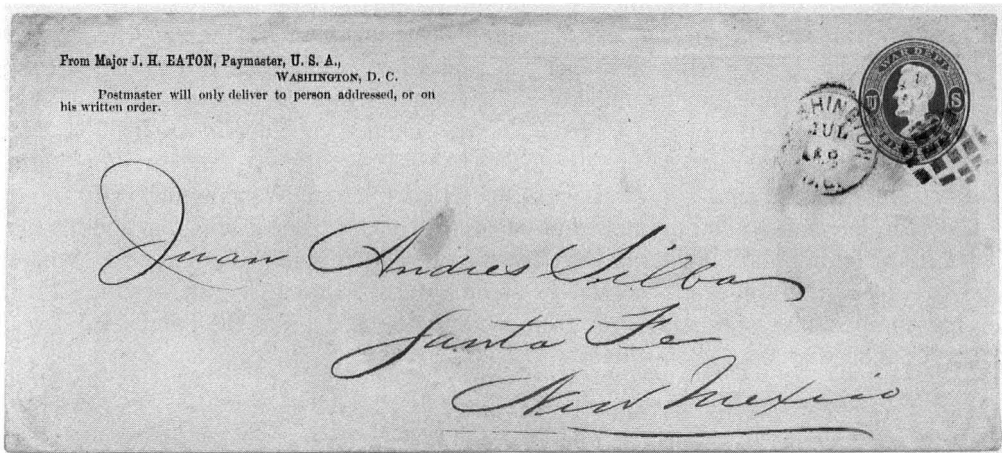 From Major J. H. EATON, Paymaster, U. S. A.,
WASHINGTON, D. C.
Postmaster will only deliver to person addressed, or on
his written order.
WAR DEPT.
U S
HINGTON
JUL
Juan Andres Silba
Santa Fe
New Mexico